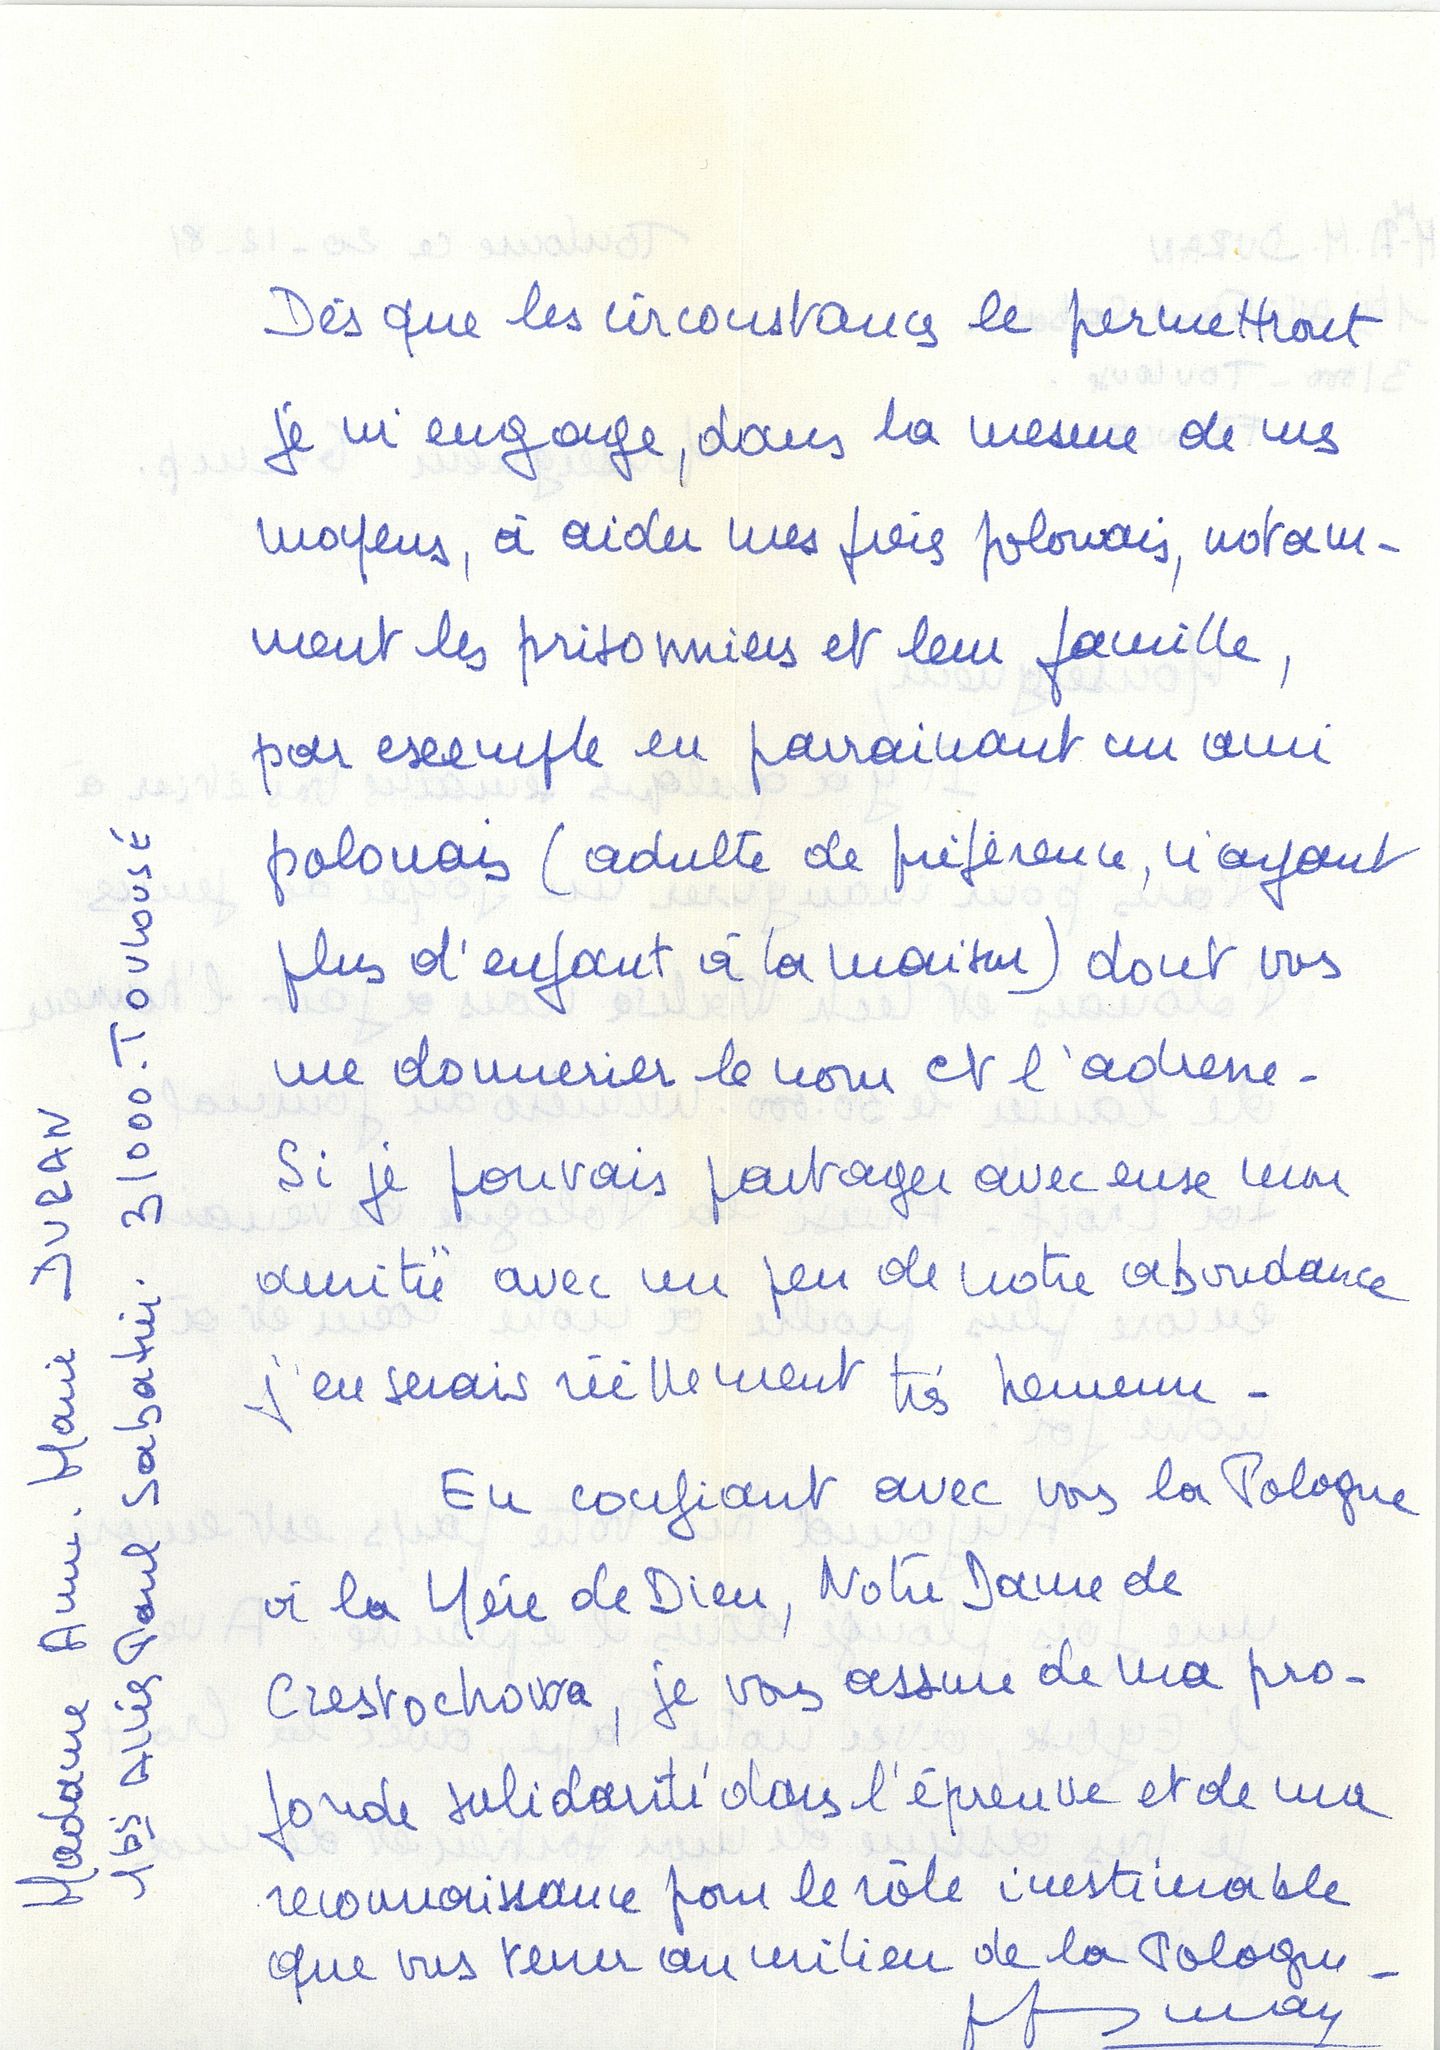 Dès que les circonstances le permettront
je m'engage, dans la mesure de mes
moyens, à aider mes frères polonais, notam-
ment les prisonniers et leur famille,
par exemple en parrainant un ami
polonais (adulte de préférence, n'ayant
plus d'enfant à la maison) dont vous
me donneriez le nom et l'adresse -
Si je pouvais partager avec eux mon
amitié avec un peu de notre abondance
j'en serais réellement très heureuse -
En confiant avec vous la Pologne
à la Mère de Dieu, Notre Dame de
Czestochowa, je vous assure de ma pro-
fonde solidarité dans l'épreuve et de ma
reconnaissance pour le rôle inestimable
que vous tenez au milieu de la Pologne -
Madame Anne. Marie DURAN
1bis Allées Paul Sabatier. 31000. TOULOUSE